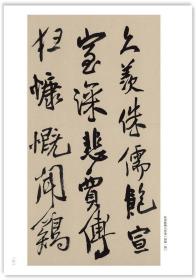 久羨侏儒飽宣
室深悲賈傅
狂慷慨聞鷄